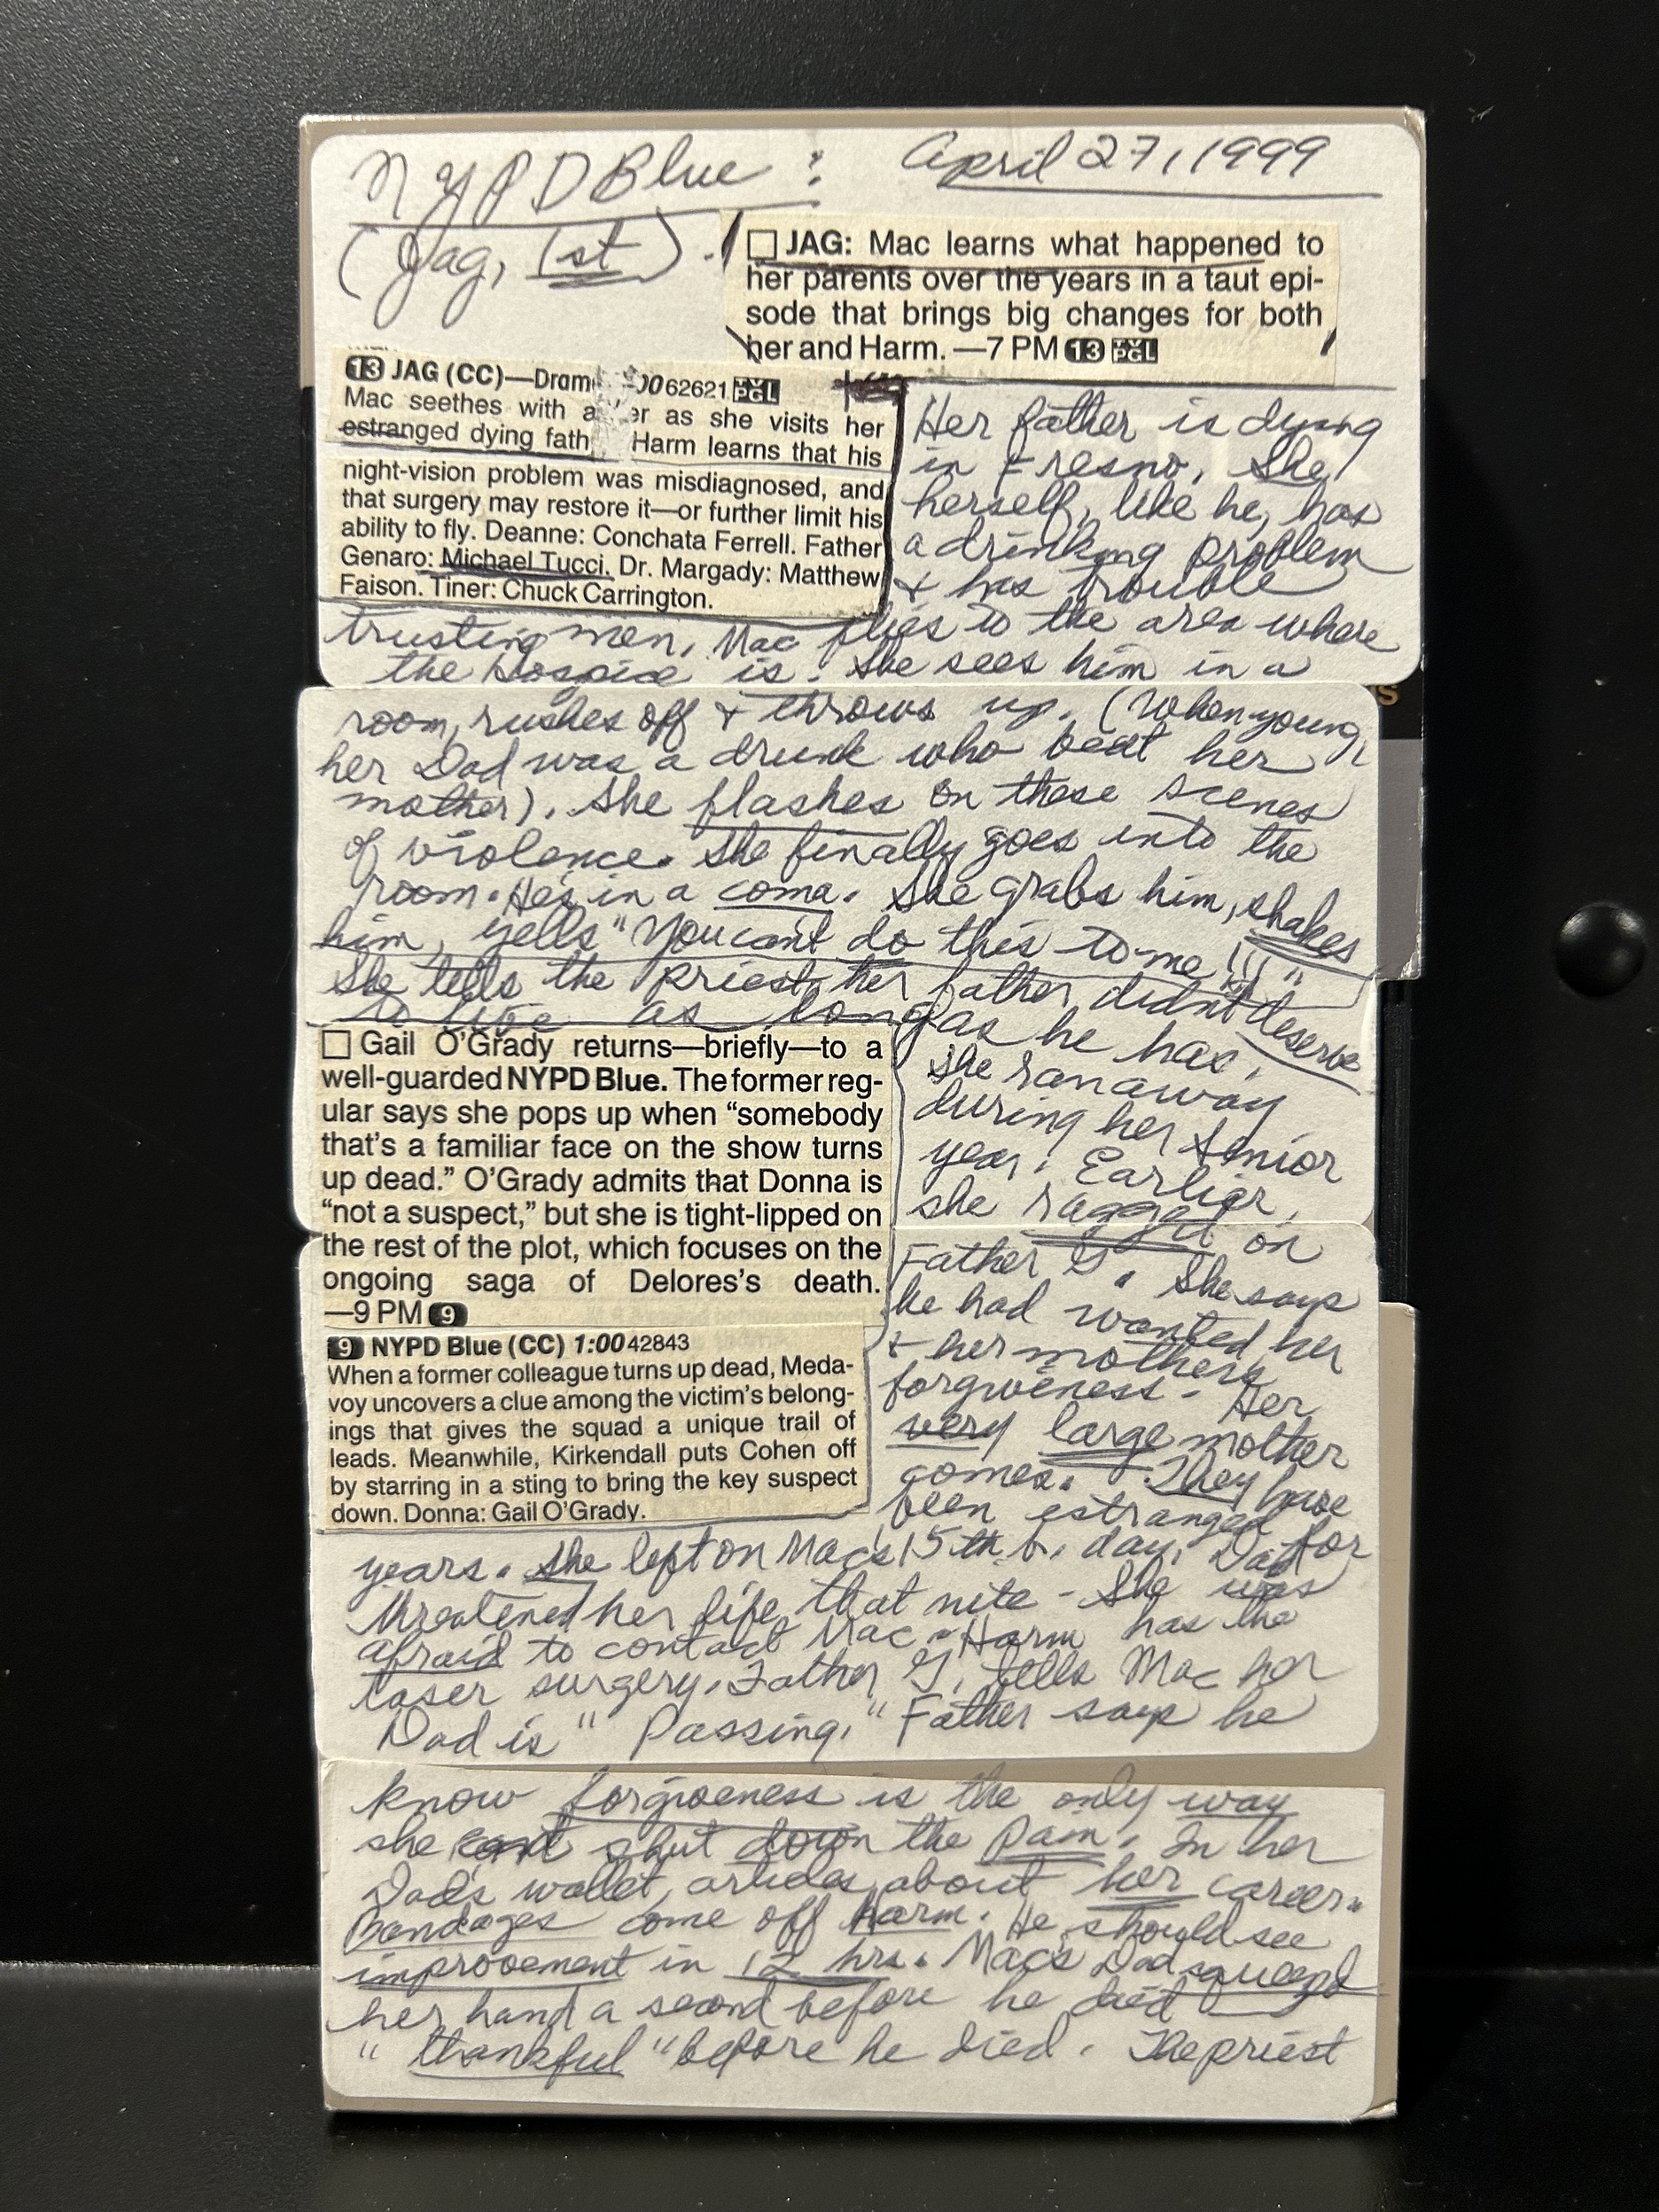 NYPD Blue : April 27, 1999
(Jag, 1st).
JAG: Mac learns what happened to
her parents over the years in a taut epi-
sode that brings big changes for both
her and Harm. —7 PM 13 TV PGL
13 JAG (CC)—Dram 00 62621 TV PGL
Mac seethes with a er as she visits her
estranged dying fath Harm learns that his
night-vision problem was misdiagnosed, and
that surgery may restore it—or further limit his
ability to fly. Deanne: Conchata Ferrell. Father
Genaro: Michael Tucci. Dr. Margady: Matthew
Faison. Tiner: Chuck Carrington.
Her father is dying
in Fresno. She,
herself, like he, has
a drinking problem
+ has trouble
trusting men. Mac flies to the area where
the Hospice is. She sees him in a
room, rushes off + throws up. (When young,
her Dad was a drunk who beat her
mother). She flashes on these scenes
of violence. She finally goes into the
room. He's in a coma. She grabs him, shakes
him, yells "You can't do this to me!!!"
She tells the priest, her father didn't deserve
to live as long as he has.
She ran away
during her senior
year. Earlier,
she ragged on
Father G. She says
he had wanted her
+ her mother's
forgiveness - Her
very large mother
comes. They have
been estranged for
years. She left on Mac's 15th b. day. Dad
threatened her life that nite - She was
afraid to contact Mac. Harm has the
laser surgery. Father G. tells Mac her
Dad is "Passing." Father says he
know forgiveness is the only way
she can shut down the pain. In her
Dad's wallet, articles about her career.
Bandages come off Harm. He should see
improvement in 12 hrs. Mac's Dad squeezed
her hand a second before he died
"thankful" before he died. The priest
Gail O'Grady returns—briefly—to a
well-guarded NYPD Blue. The former reg-
ular says she pops up when “somebody
that's a familiar face on the show turns
up dead.” O'Grady admits that Donna is
“not a suspect,” but she is tight-lipped on
the rest of the plot, which focuses on the
ongoing saga of Delores's death.
—9 PM 9
9 NYPD Blue (CC) 1:00 42843
When a former colleague turns up dead, Meda-
voy uncovers a clue among the victim's belong-
ings that gives the squad a unique trail of
leads. Meanwhile, Kirkendall puts Cohen off
by starring in a sting to bring the key suspect
down. Donna: Gail O'Grady.